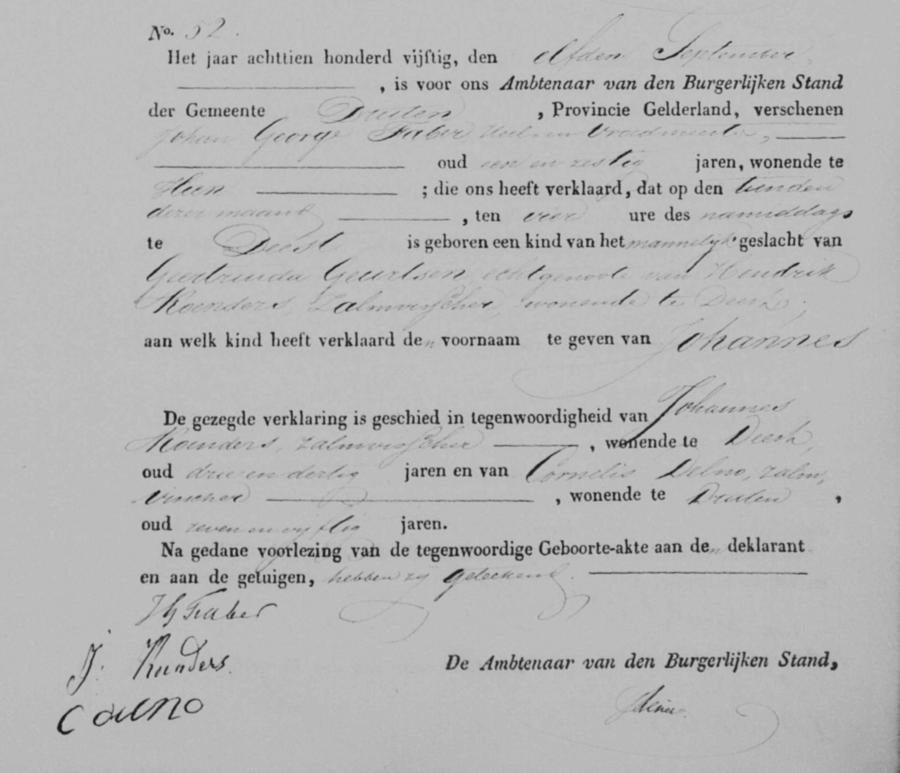 No. 52.
Het jaar achttien honderd vijftig, den elfden September
, is voor ons Ambtenaar van den Burgerlijken Stand
der Gemeente Druten, Provincie Gelderland, verschenen
Johan George Faber Heel en Vroedmeester,
oud een en zestig jaren, wonende te
; die ons heeft verklaard, dat op den tienden
dezer maand, ten vier ure des namiddags
te Deest is geboren een kind van het mannelijk geslacht van
Geertruida Geurtsen, echtgenoote van Hendrik
Roenders, zalmvisscher, wonende te Deest,
aan welk kind heeft verklaard den voornaam te geven van Johannes
De gezegde verklaring is geschied in tegenwoordigheid van Johannes
zalmvisscher, wonende te Deest,
oud drie en dertig jaren en van Cornelis zalm,
visscher, wonende te Druten,
oud zeven en vijftig jaren.
Na gedane voorlezing van de tegenwoordige Geboorte-akte aan den deklarant
en aan de getuigen, hebben zij geteekend.
JG Faber
J.
De Ambtenaar van den Burgerlijken Stand,